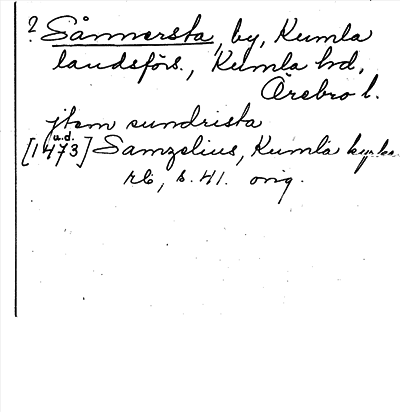 ? Sånnersta, by, Kumla
landsförs., Kumla hd,
Örebro l.
jtem sundrista
u.d.
[1473] Samzelius, Kumla kyrkas
rb, s. 41. orig.